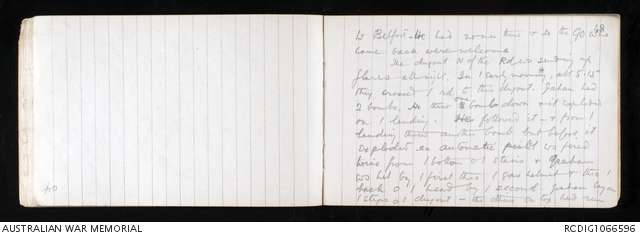 40
48
to Belfort. He had no men there & so the 90 who
came back were welcome.
The dugout N of the Rd was sending up
flares all night. In / early morning, abt 5.15
they crossed / rd to this dugout. Graham had
2 bombs. He threw one bomb down wh exploded
on / landing. He followed it - & from /
landing threw another bomb but before it
exploded an automatic pistol was fired
twice from / bottom o / stairs & Graham
was hit by / first thro / gas helmet & thro /
back o / head by / second. Graham lay on
/ steps o / dugout - the others on top had run
AUSTRALIAN WAR MEMORIAL
RCDIG1066596